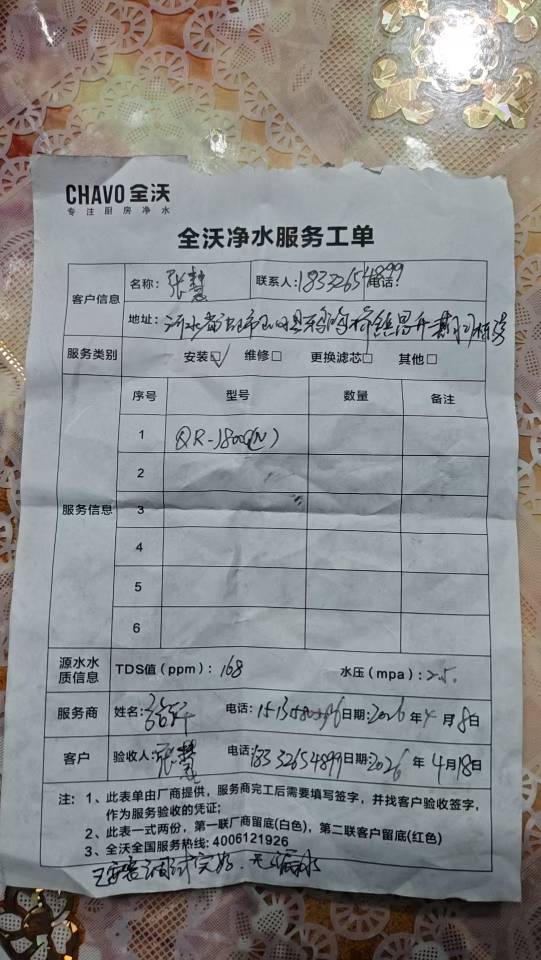 CHAVO 全沃
专注厨房净水
全沃净水服务工单
客户信息 名称: 张慧 联系人: 18332654899 电话:
地址: 河北省
服务类别 安装☑ 维修□ 更换滤芯□ 其他□
服务信息 序号 型号 数量 备注
1 QR-1800(N)
2
3
4
5
6
源水水质信息 TDS值(ppm): 168 水压(mpa): 2.5.
服务商 姓名: 电话: 日期: 2026 年 4 月 8 日
客户 验收人: 张慧 电话: 18332654899 日期: 2026 年 4 月 18 日
注: 1、此表单由厂商提供，服务商完工后需要填写签字，并找客户验收签字，
作为服务验收的凭证;
2、此表一式两份，第一联厂商留底(白色)，第二联客户留底(红色)
3、全沃全国服务热线: 4006121926
安装调试完好. 无漏水